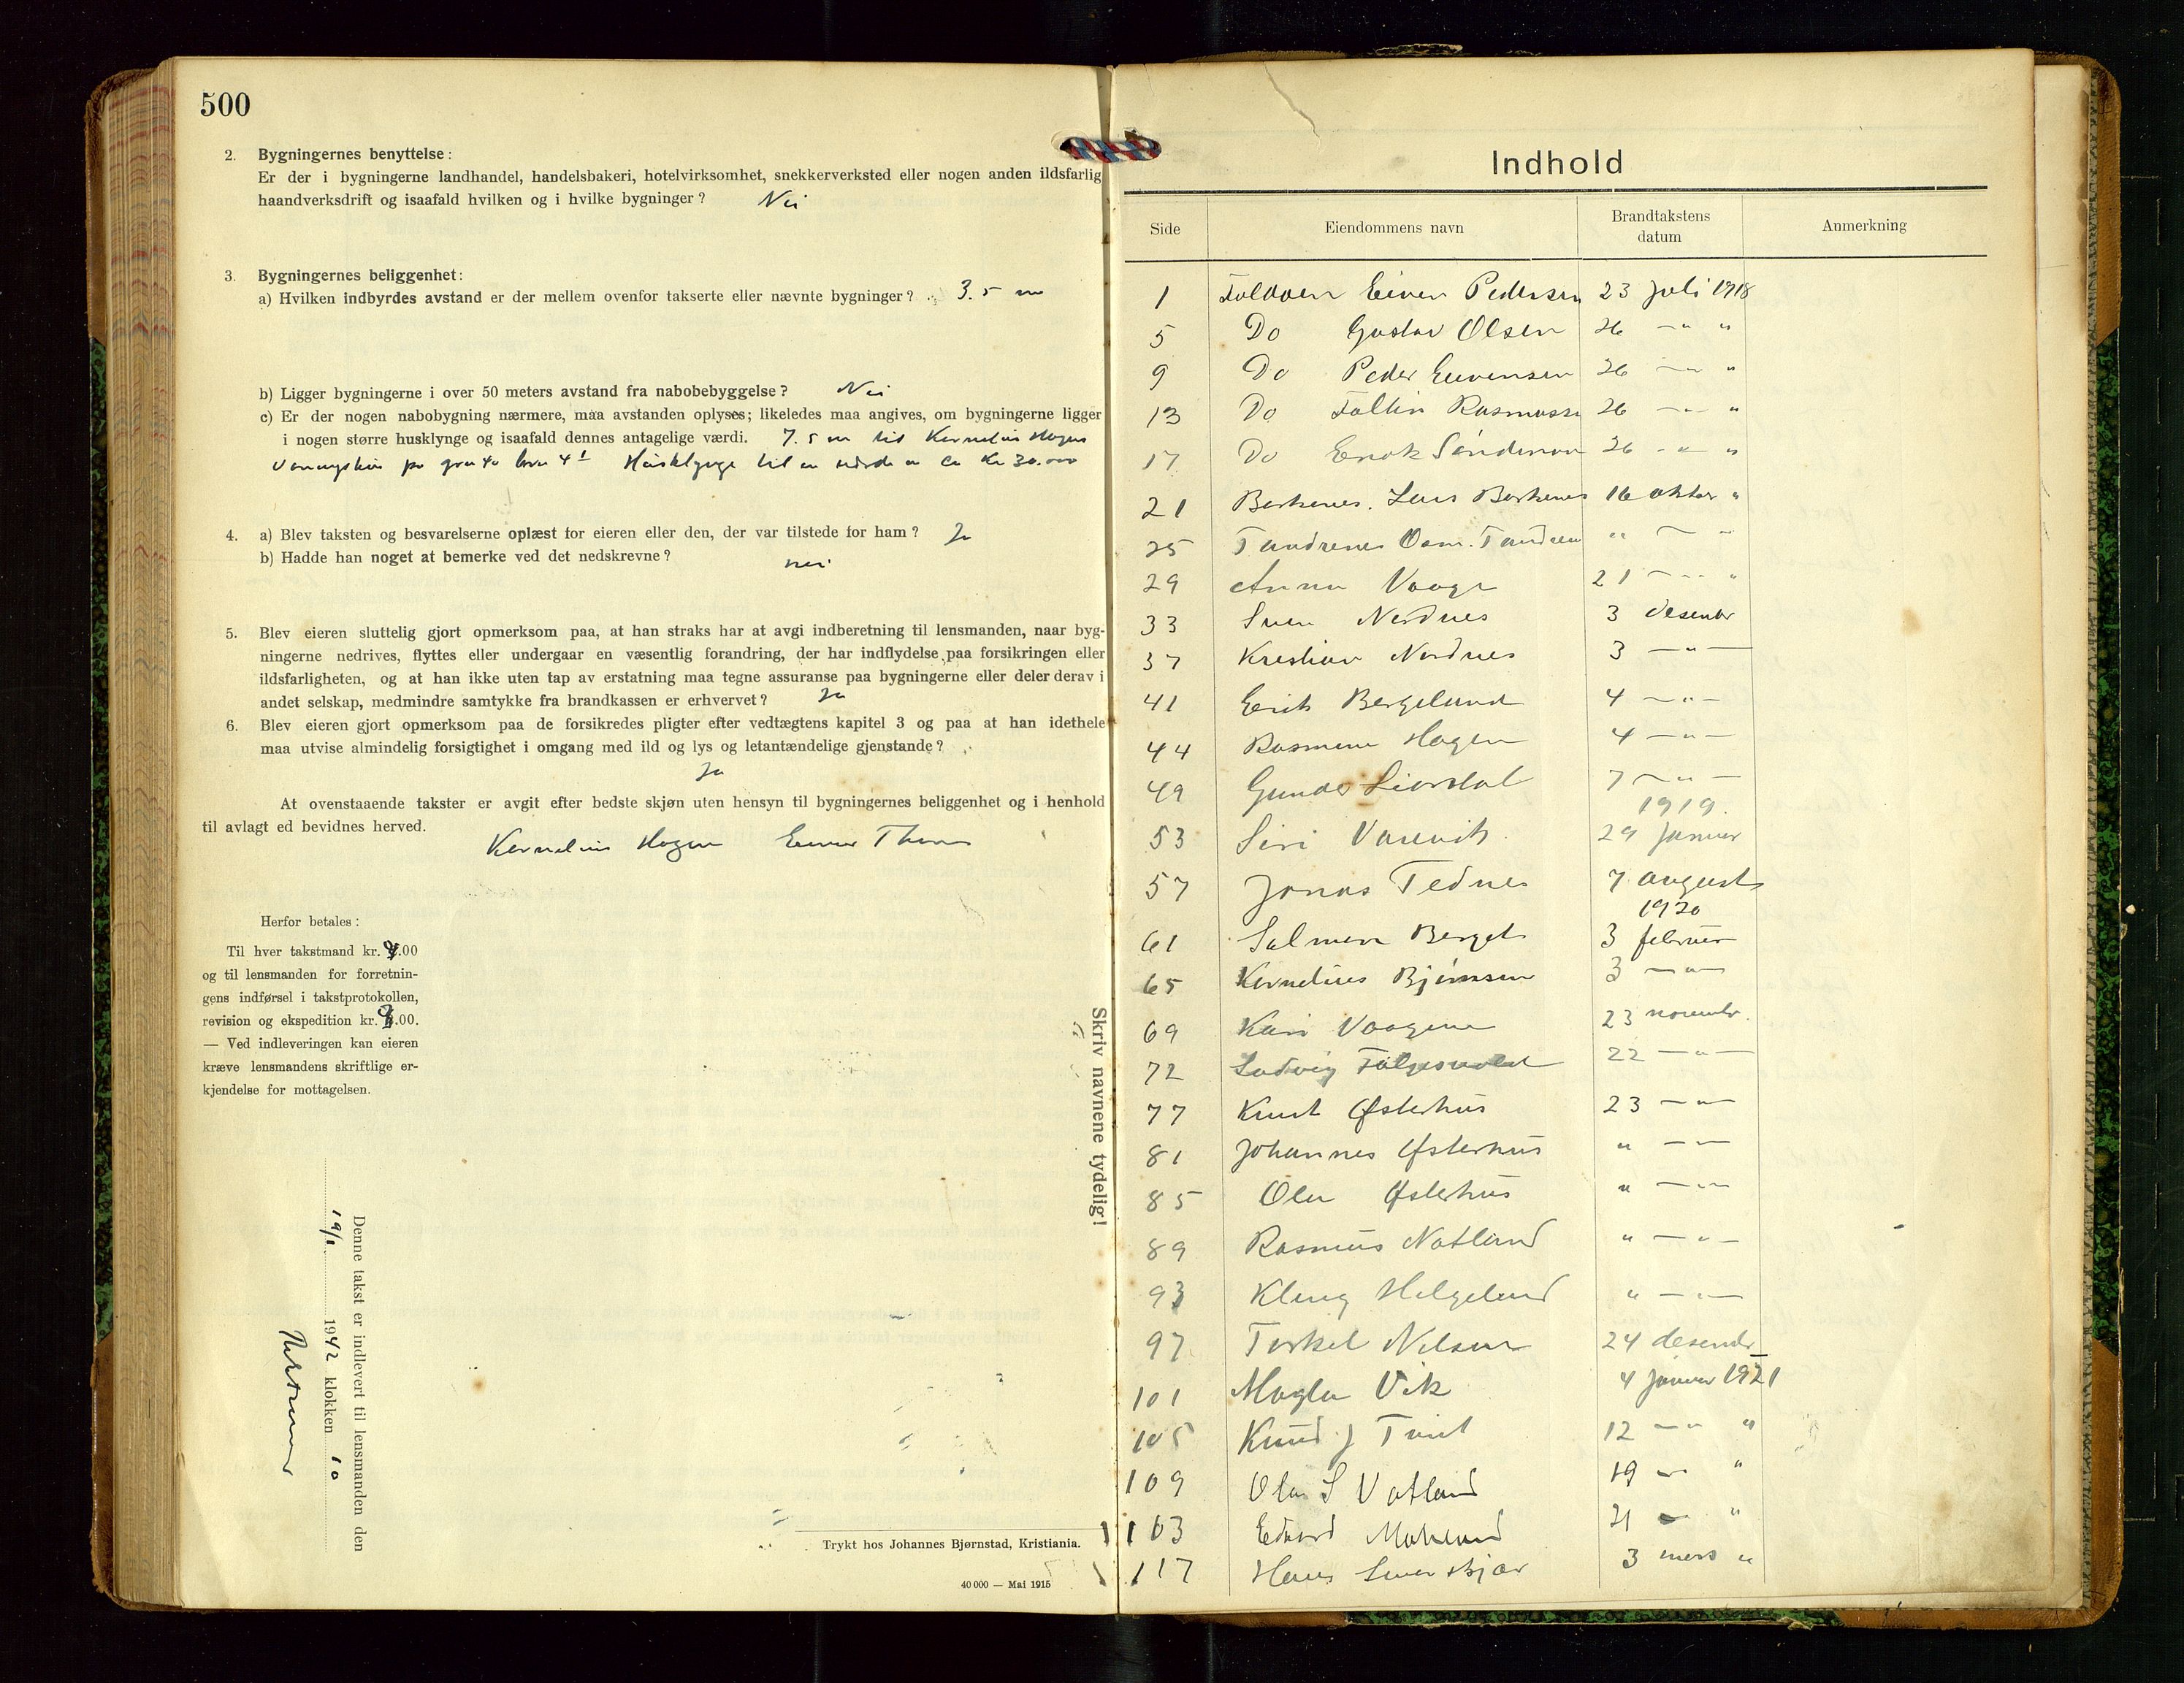 500
2. Bygningernes benyttelse:
Er der i bygningerne landhandel, handelsbakeri, hotelvirksomhet, snekkerverksted eller nogen anden ildsfarlig
haandverksdrift og isaafald hvilken og i hvilke bygninger? Nei
3. Bygningernes beliggenhet:
a) Hvilken indbyrdes avstand er der mellem ovenfor takserte eller nævnte bygninger? 3.5 m
b) Ligger bygningerne i over 50 meters avstand fra nabobebyggelse? Nei
c) Er der nogen nabobygning nærmere, maa avstanden oplyses; likeledes maa angives, om bygningerne ligger
i nogen større husklynge og isaafald dennes antagelige værdi. 7.5 m til Kornelius Hagens
4. a) Blev taksten og besvarelserne oplæst for eieren eller den, der var tilstede for ham? Ja
b) Hadde han noget at bemerke ved det nedskrevne? nei
5. Blev eieren sluttelig gjort opmerksom paa, at han straks har at avgi indberetning til lensmanden, naar byg-
ningerne nedrives, flyttes eller undergaar en væsentlig forandring, der har indflydelse paa forsikringen eller
ildsfarligheten, og at han ikke uten tap av erstatning maa tegne assuranse paa bygningerne eller deler derav i
andet selskap, medmindre samtykke fra brandkassen er erhvervet? Ja
6. Blev eieren gjort opmerksom paa de forsikredes pligter efter vedtægtens kapitel 3 og paa at han idethele
maa utvise almindelig forsigtighet i omgang med ild og lys og letantændelige gjenstande?
Ja
At ovenstaaende takster er avgit efter bedste skjøn uten hensyn til bygningernes beliggenhet og i henhold
til avlagt ed bevidnes herved.
Kornelius Hagen
Herfor betales:
Til hver takstmand kr. .00
og til lensmanden for forretnin-
gens indførsel i takstprotokollen,
revision og ekspedition kr. .00.
— Ved indleveringen kan eieren
kræve lensmandens skriftlige er-
kjendelse for mottagelsen.
Denne takst er indlevert til lensmanden den
19/1 1942 klokken 10
Skriv navnene tydelig!
Trykt hos Johannes Bjørnstad, Kristiania.
40 000 — Mai 1915
Indhold
Side Eiendommens navn Brandtakstens datum Anmerkning
1 Foldøen Einer Pedersen 23 juli 1918
5 Do Gustav Olsen 26 — " "
9 Do Peder Eivensen 26 — " "
13 Do Rasmussen 26 — " "
17 Do Enok 26 — " "
21 Berkenes. Lars Berkenes 16 oktor "
25 " — "
29 Anna Vaage 21 — " "
33 Sven Nordnes 3 desembr
37 Kristian Nordnes 3 — " —
41 Erik Bergeland 4 — " —
44 Rasmus Hagen 4 — " —
49 7 — " —
1919.
53 Siri 29 januar
57 Jonas Tednes 7 august
1920
61 Salmon Berget 3 februar
65 Kornelius Bjørnsen 3 — " —
69 Kari Vaagene 23 novembr.
72 Ludvig 22 — " —
77 Knut Østerhus 23 — " —
81 Johannes Østerhus " — " —
85 Ola Østerhus " — " —
89 Rasmus Natland " — " —
93 Helgeland " — " —
97 Torkel Nilsen 24 desembr
101 Magla Vik 4 januar 1921
105 Knud J 12 — " "
109 Ola S Vatland 19 — "
103 21 — "
117 Hans 3 mars "